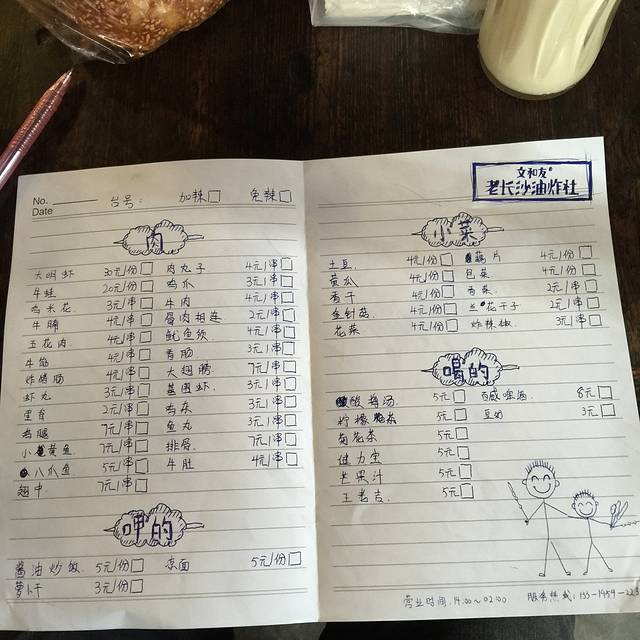 No. 台号: 加辣 免辣
Date
肉
大明虾 30元/份 肉丸子 4元/串
牛蛙 20元/份 鸡爪 3元/串
鸡米花 3元/串 牛肉 4元/串
牛脯 4元/串 骨肉相连 2元/串
五花肉 4元/串 鱿鱼须 4元/串
牛筋 4元/串 香肠 3元/串
炸猪肠 4元/串 大翅膀 7元/串
虾丸 3元/串 基围虾 3元/串
里脊 2元/串 鸡尖 3元/串
鸡腿 7元/串 鱼丸 3元/串
小黄鱼 7元/串 排骨 7元/串
八爪鱼 5元/串 牛肚 4元/串
翅中 7元/串
呷的
酱油炒饭 5元/份 凉面 5元/份
萝卜干 3元/份
文和友
老长沙油炸社
小菜
土豆 4元/份 藕片 4元/份
黄瓜 4元/份 包菜 4元/份
香干 4元/份 香菜 2元/串
金针菇 4元/份 兰花干子 2元/串
花菜 4元/份 炸辣椒 3元/串
喝的
酸梅汤 5元 百威啤酒 8元
柠檬茶 5元 豆奶 3元
菊花茶 5元
健力宝 5元
芒果汁 5元
王老吉 5元
营业时间:14:00~02:00 服务热线: